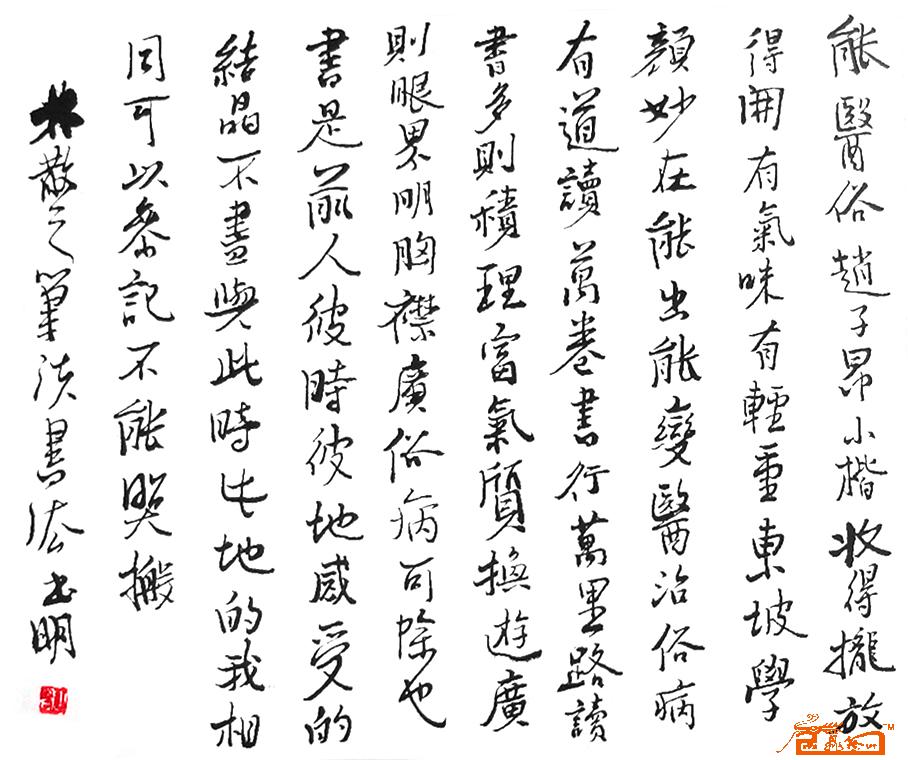 能醫俗趙子昂小楷收得攏放
得開有氣味有輕重東坡學
顏妙在能出能變醫治俗病
有道讀萬卷書行萬里路讀
書多則積理富氣質換遊廣
則眼界明胸襟廣俗病可除也
書是前人彼時彼地感受的
結晶不盡與此時此地的我相
同可以參記不能照搬
林散之筆談書法 書明